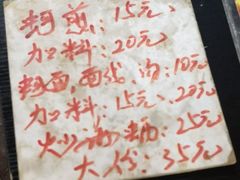 煎：15元
加料：20元
面，面线：10元
加料：15元、20元
炒：25元
大份：35元